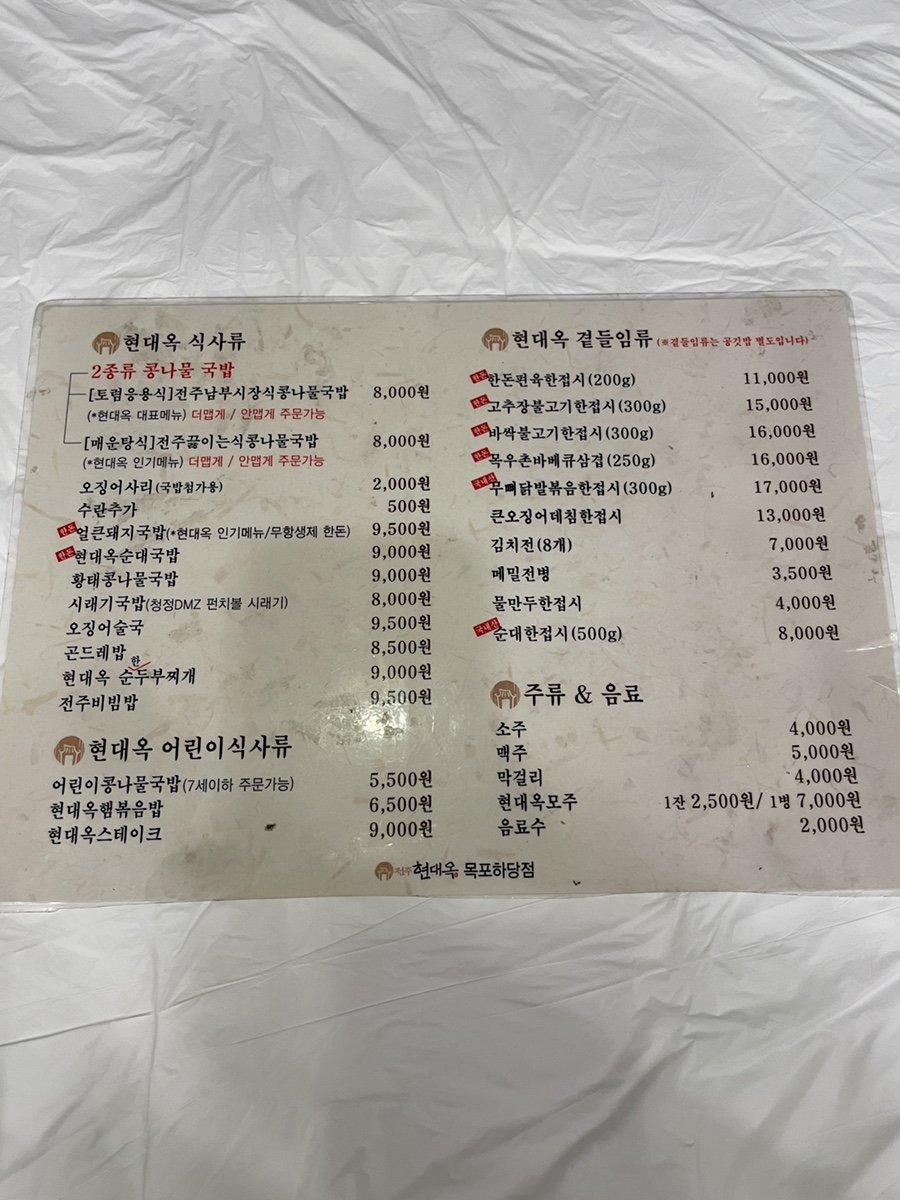 현대옥 식사류
2종류 콩나물 국밥
[토렴응용식]전주남부시장식콩나물국밥 8,000원
(*현대옥 대표메뉴) 더맵게 / 안맵게 주문가능
[매운탕식]전주끓이는식콩나물국밥 8,000원
(*현대옥 인기메뉴) 더맵게 / 안맵게 주문가능
오징어사리(국밥첨가용) 2,000원
수란추가 500원
한돈 얼큰돼지국밥(*현대옥 인기메뉴/무항생제 한돈) 9,500원
한돈 현대옥순대국밥 9,000원
황태콩나물국밥 9,000원
시래기국밥(청정DMZ 펀치볼 시래기) 8,000원
오징어술국 9,500원
곤드레밥 8,500원
한
현대옥 순두부찌개 9,000원
전주비빔밥 9,500원
현대옥 어린이식사류
어린이콩나물국밥(7세이하 주문가능) 5,500원
현대옥햄볶음밥 6,500원
현대옥스테이크 9,000원
현대옥 곁들임류 (※곁들임류는 공깃밥 별도입니다)
한돈 한돈편육한접시(200g) 11,000원
한돈 고추장불고기한접시(300g) 15,000원
한돈 바싹불고기한접시(300g) 16,000원
한돈 목우촌바베큐삼겹(250g) 16,000원
국내산 무뼈닭발볶음한접시(300g) 17,000원
큰오징어데침한접시 13,000원
김치전(8개) 7,000원
메밀전병 3,500원
물만두한접시 4,000원
국내산 순대한접시(500g) 8,000원
주류 & 음료
소주 4,000원
맥주 5,000원
막걸리 4,000원
현대옥모주 1잔 2,500원/ 1병 7,000원
음료수 2,000원
전주 현대옥 목포하당점